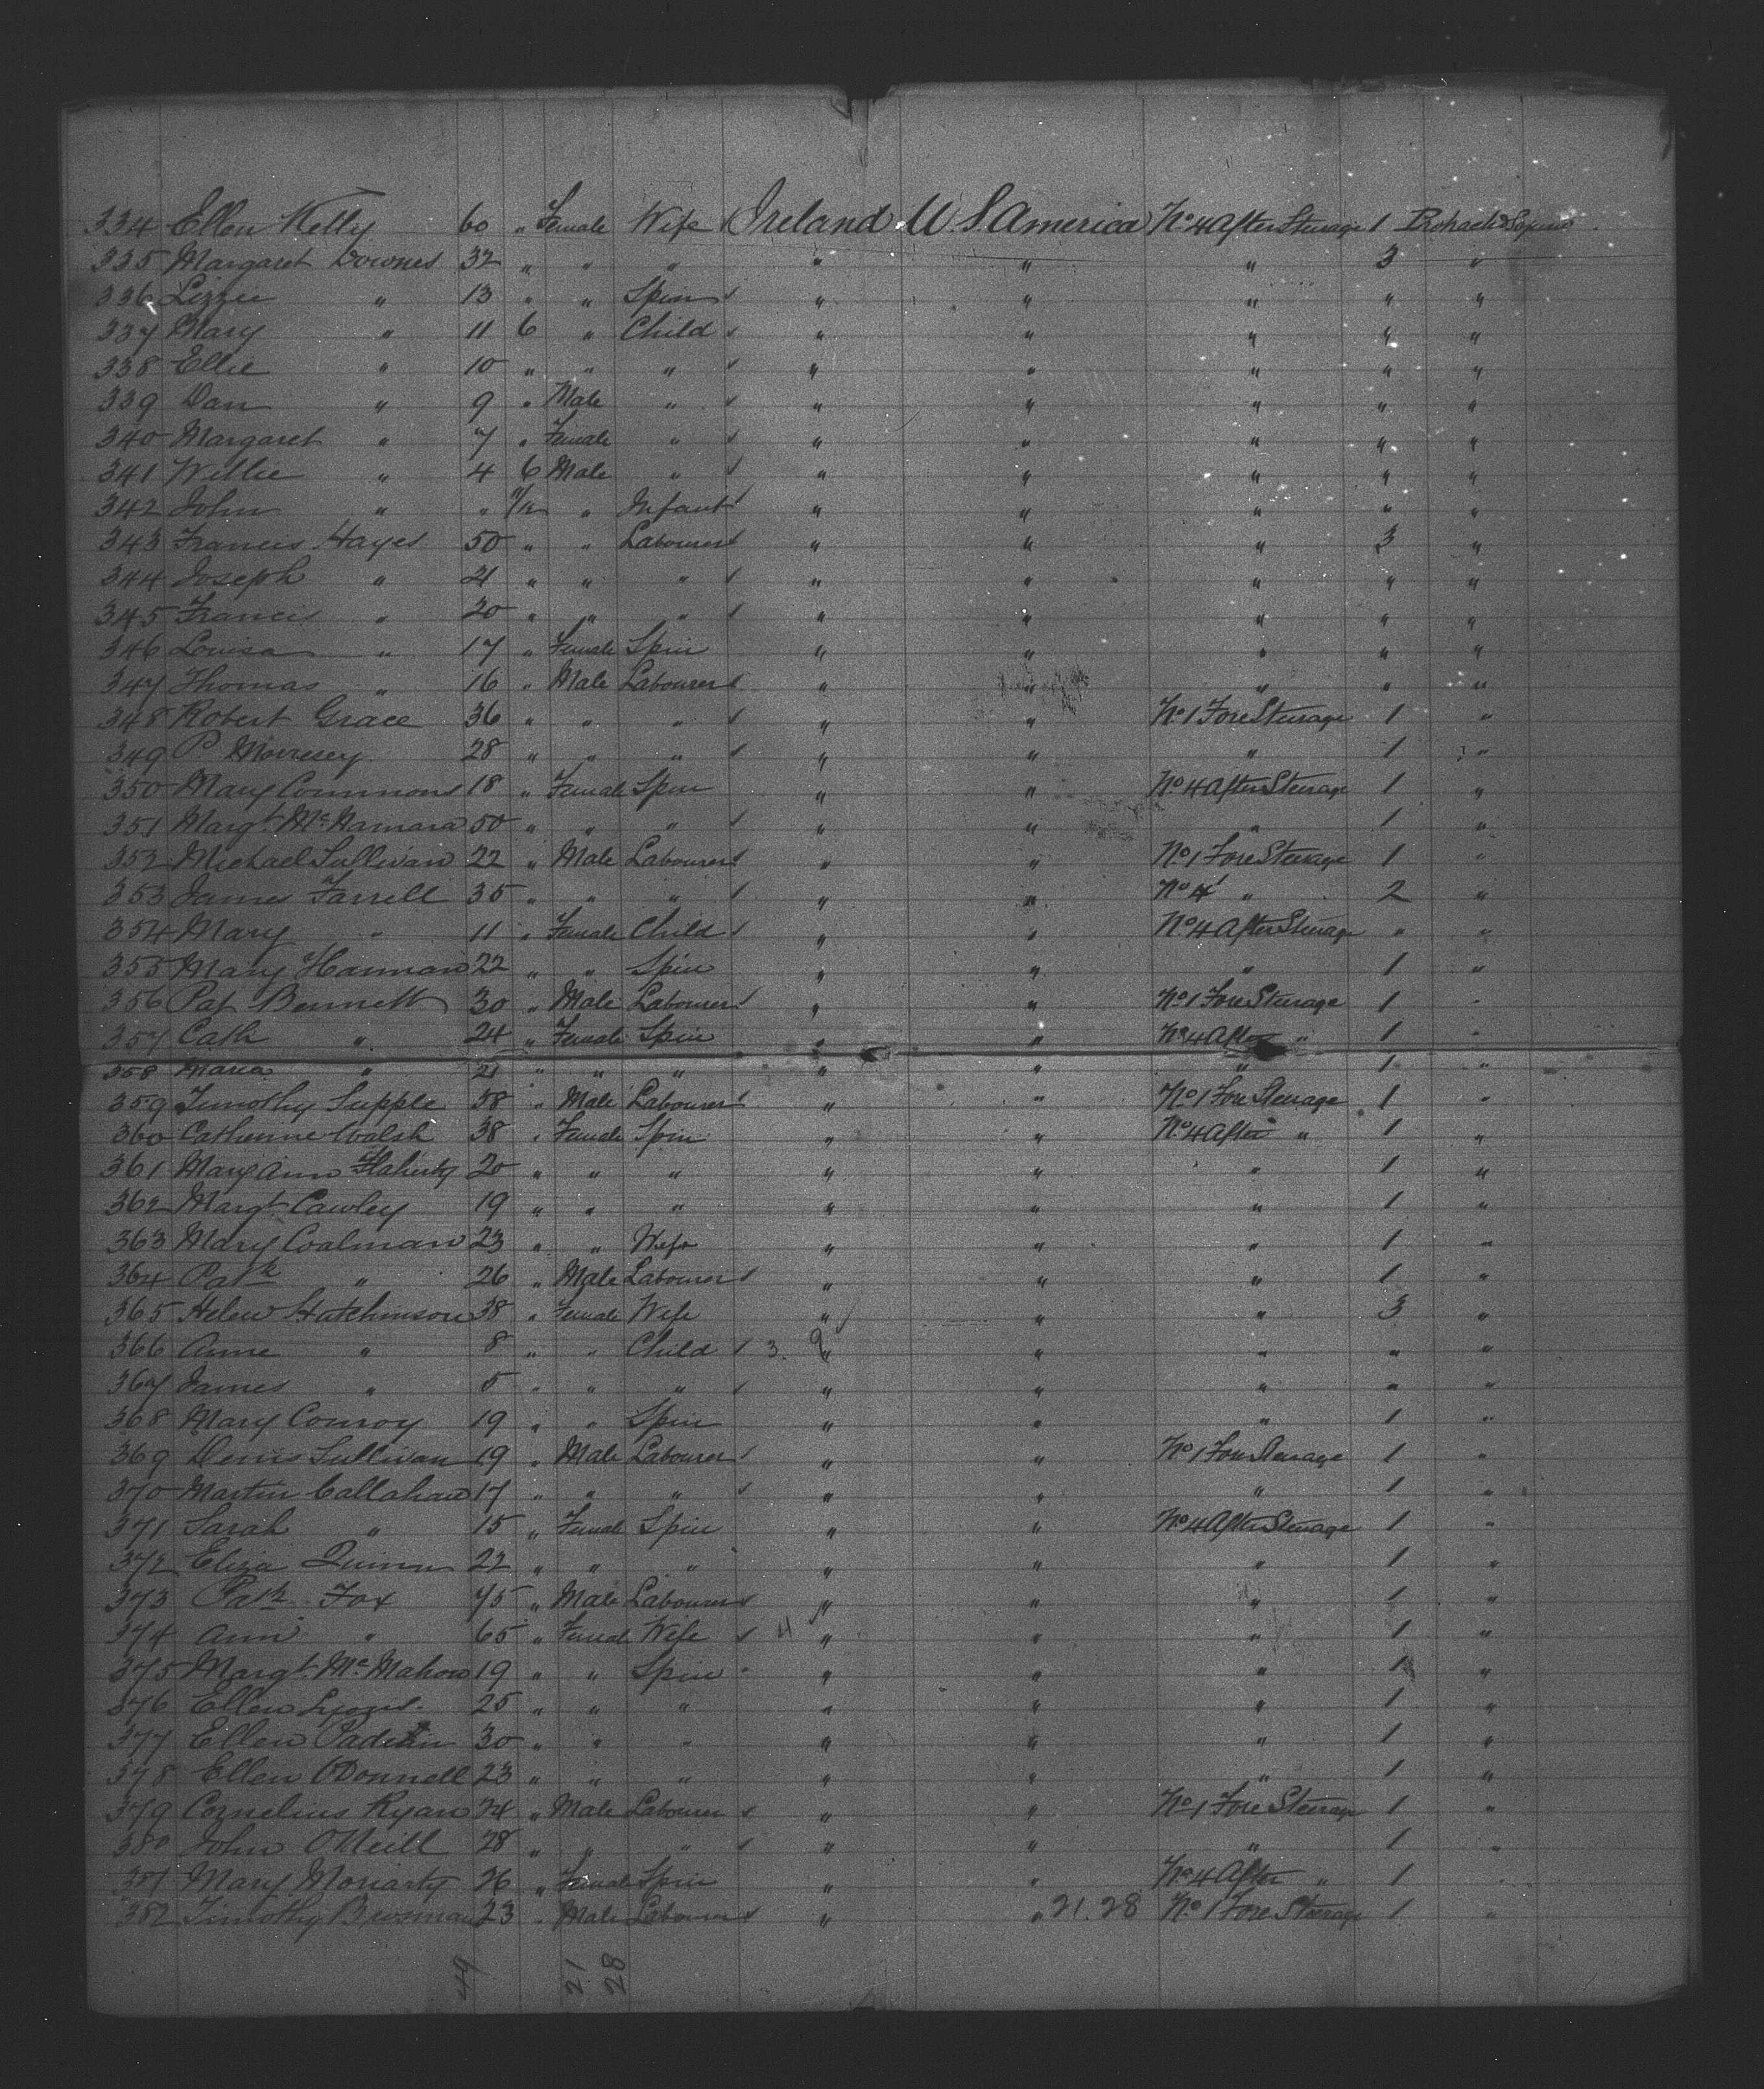 334 Ellen Kelly 60 " Female Wife Ireland U.S. America No 4 After Steerage 1 Protracted Sojourn
335 Margaret Downes 32 " " " " " " 3 "
336 Lizzie " 13 " " Spin " " " " "
337 Mary " 11 6 " Child " " " " "
338 Ellie " 10 " " " " " " " "
339 Dan " 9 " Male " " " " " "
340 Margaret " 7 " Female " " " " " "
341 Willie " 4 6 Male " " " " " "
342 John " " 11/12 " Infant " " " " "
343 Francis Hayes 50 " " Labourer " " " 3 "
344 Joseph " 21 " " " " " " " "
345 Francis " 20 " " " " " " " "
346 Louisa " 17 " Female Spin " " " " "
347 Thomas " 16 " Male Labourer " " " " "
348 Robert Grace 36 " " " " " No 1 Fore Steerage 1 "
349 P Morresey 28 " " " " " " 1 "
350 Mary Commons 18 " Female Spin " " No 4 After Steerage 1 "
351 Margt. McNamara 50 " " " " " " 1 "
352 Michael Sullivan 22 " Male Labourer " " No 1 Fore Steerage 1 "
353 James Farrell 35 " " " " " No 4 " 2 "
354 Mary " 11 " Female Child " " No 4 After Steerage " "
355 Mary Hannan 22 " " Spin " " " 1 "
356 Pat Bennett 30 " Male Labourer " " No 1 Fore Steerage 1 "
357 Cath " 24 " Female Spin " " No 4 After " 1 "
358 Maria " 21 " " " " " " 1 "
359 Timothy Supple 58 " Male Labourer " " No 1 Fore Steerage 1 "
360 Catherine Walsh 38 " Female Spin " " No 4 After " 1 "
361 Mary Ann Flaherty 20 " " " " " " 1 "
362 Margt Cawley 19 " " " " " " 1 "
363 Mary Coalman 23 " " Wife " " " 1 "
364 Patk " 26 " Male Labourer " " " 1 "
365 Helen Hutchinson 38 " Female Wife " " " 3 "
366 Anne " 8 " " Child 3. " " " " "
367 James " 5 " " " " " " " "
368 Mary Conroy 19 " " Spin " " " 1 "
369 Denis Sullivan 19 " Male Labourer " " No 1 Fore Steerage 1 "
370 Martin Callahan 17 " " " " " " 1 "
371 Sarah " 15 " Female Spin " " No 4 After Steerage 1 "
372 Eliza Quinn 22 " " " " " " 1 "
373 Patk Fox 75 " Male Labourer " " " 1 "
374 Ann " 65 " Female Wife " " " 1 "
375 Margt. McMahon 19 " " Spin " " " 1 "
376 Ellen Lyons 25 " " " " " " 1 "
377 Ellen 30 " " " " " " 1 "
378 Ellen O'Donnell 23 " " " " " " 1 "
379 Cornelius Ryan 24 " Male Labourer " " No 1 Fore Steerage 1 "
380 John O'Neill 28 " " " " " " 1 "
381 Mary Moriarty 26 " Female Spin " " No 4 After " 1 "
382 Timothy Brosman 23 " Male Labourer " " 21.28 No 1 Fore Steerage 1 "
49 21 28